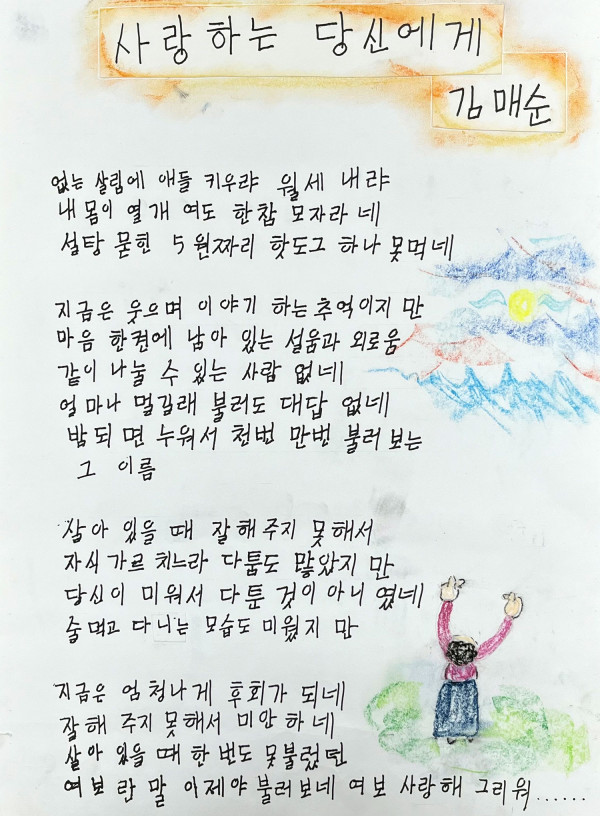 사랑하는 당신에게
김매순
없는 살림에 애들 키우랴 월세 내랴
내 몸이 열개 여도 한참 모자라 네
설탕 묻힌 5원짜리 핫도그 하나 못먹네
지금은 웃으며 이야기 하는 추억이지 만
마음 한켠에 남아 있는 설움과 외로움
같이 나눌 수 있는 사람 없네
얼마나 멀길래 불러도 대답 없네
밤되면 누워서 천번 만번 불러 보는
그 이름
살아 있을 때 잘해주지 못해서
자식 가르 치느라 다툼도 많았지 만
당신이 미워서 다툰 것이 아니 였네
술먹고 다니는 모습도 미웠지 만
지금은 엄청나게 후회가 되네
잘해 주지 못해서 미안 하 네
살아 있을 때 한 번도 못불렀던
여보 란 말 이제야 불러보네 여보 사랑해 그리워......